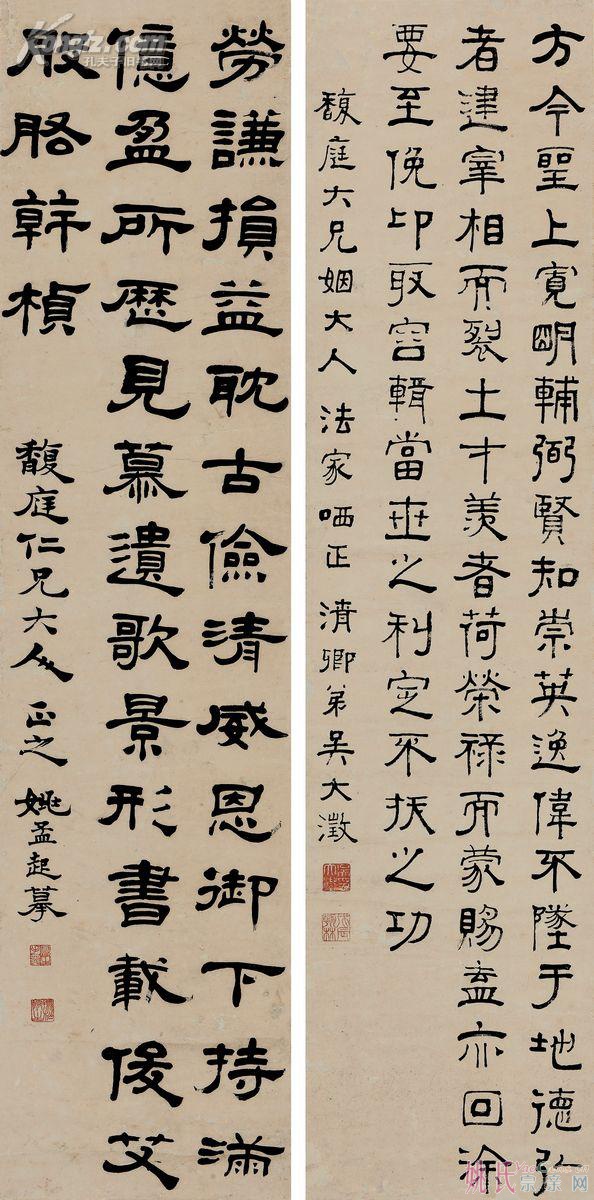 方今聖上寬明輔弼賢知崇英逸偉不墜于地德弘
者建宰相而裂土才羨者荷榮祿而蒙賜盍亦回塗
要至俛卬取容輯當世之利定不拔之功
馥庭大兄姻大人法家哂正 清卿弟吳大澂
勞謙損益耽古儉清威恩御下持滿
億盈所歷見慕遺歌景形書載俊艾
股肱幹楨
馥庭仁兄大人正之 姚孟起摹
孔夫子旧书网